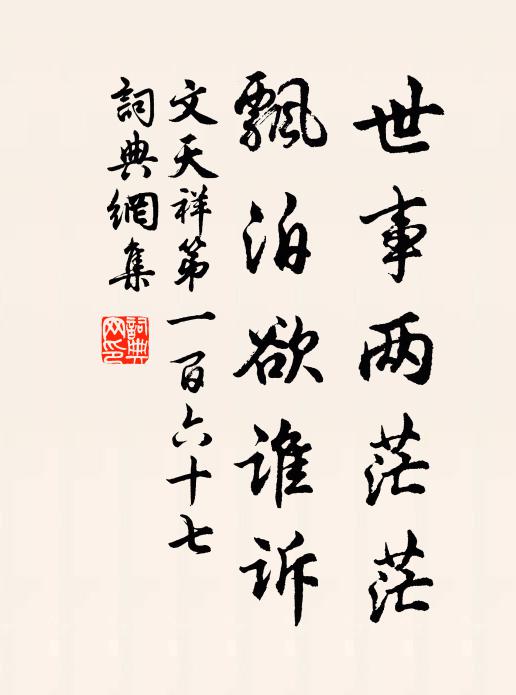 世事两茫茫
飘泊欲谁诉
文天祥第一百六十七
詞典網集
詞典网印